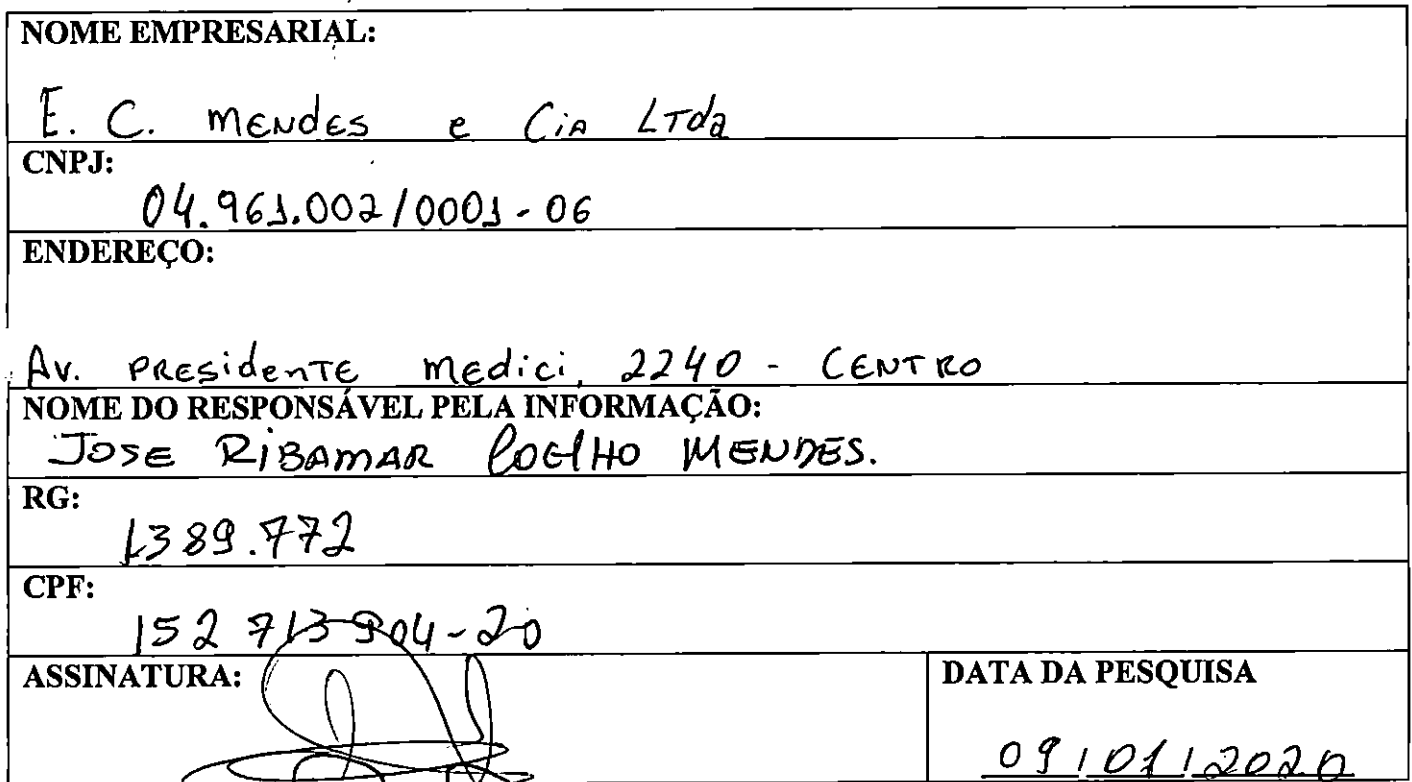 NOME EMPRESARIAL:
E. C. MENdES e CiA LTda
CNPJ:
04.961.002/0001-06
ENDEREÇO:
Av. PREsidenTE Medici, 2240 - CENTRO
NOME DO RESPONSÁVEL PELA INFORMAÇÃO:
JOSE RIBAMAR COElHO MENDES.
RG:
1389.772
CPF:
152 713 904-20
ASSINATURA:
DATA DA PESQUISA
09/01/2020